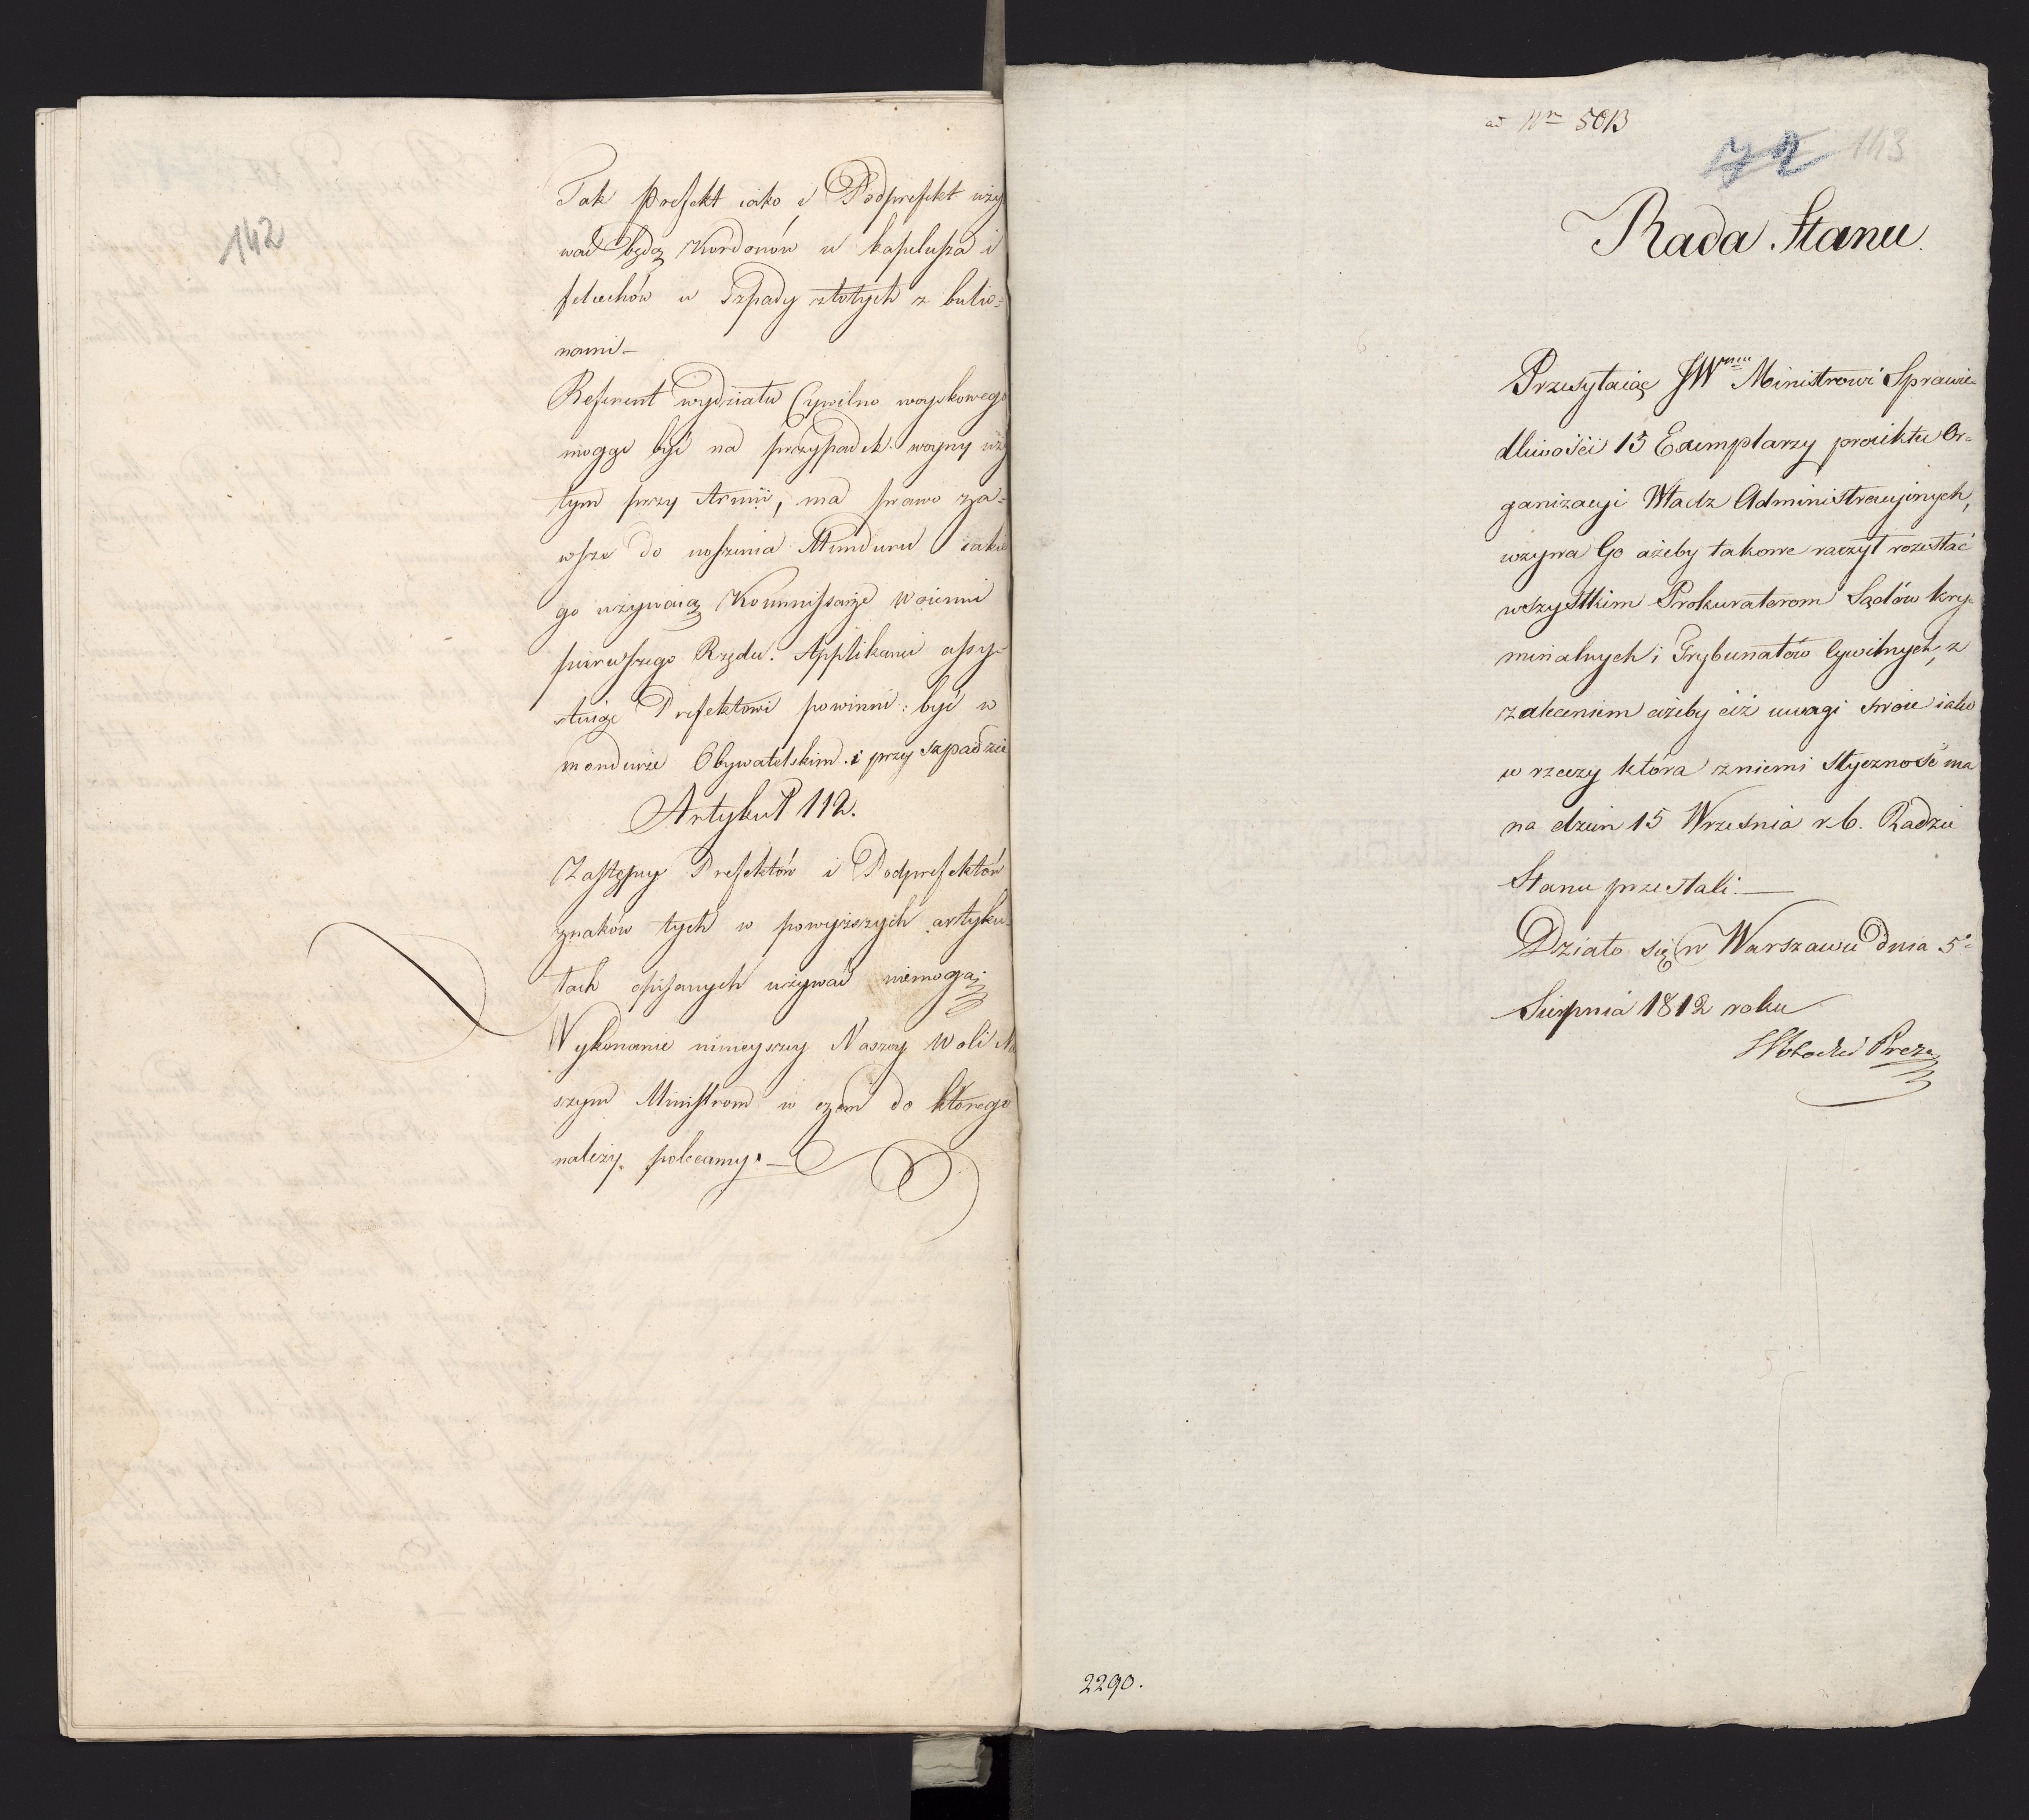 142
Tak Prefekt iako i Podprefekt uży
wać będą Kordonów u kapelusza i
felcechów u Szpady złotych z bulio=
nami—
Referent wydziału Cywilno woyskowego
mogąc być na przypadek woyny uży
tym przy Armii, ma prawo za=
wsze do noszenia Munduru iakie
go używaią Kommissarze Woienni
pierwszego Rzędu. Applikanci assy=
stuiąc Prefektowi powinni być w
mondurze Obywatelskim i przy szpadzie
Artykuł 112.
Zastępcy Prefektów i Podprefektów
znaków tych w powyższych artyku=
łach opisanych używać niemogą.
Wykonanie ninieyszey Naszey Woli Na
szym Ministrom w czém do którego
należy, polecamy.—
ad Nrm 5013
72 143
Rada Stanu.
Przesyłaiąc JWmu Ministrowi Sprawie=
dliwości 15 Exemplarzy proiektu Or=
ganizacyi Władz Administracyinych,
wzywa Go ażeby takowe raczył rozesłać
wszystkim Prokuratorom Sądów kry=
minalnych i Trybunałów Cywilnych, z
zaleceniem ażeby ciż uwagi swoie iako
w rzeczy która z niemi styczność ma
na dzień 15 Września r. b. Radzie
Stanu przesłali.—
Działo się w Warszawie dnia 5o
Sierpnia 1812 roku
Prezes
2290.